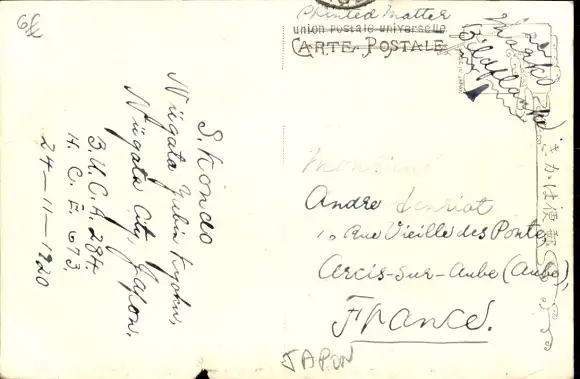 Printed Matter
union postale universelle
CARTE POSTALE
Marke
Bildflanke
S. Kondo
Niigata Yubin Kyoku,
Niigata City, Japon.
B.U.C.A. 284.
H.C.E. 673.
24-11-1920
Monsieur
Andre Henriot
10 Rue Vieille des Ponts
Arcis-sur-Aube (Aube),
France.
きかは便郵
JAPON